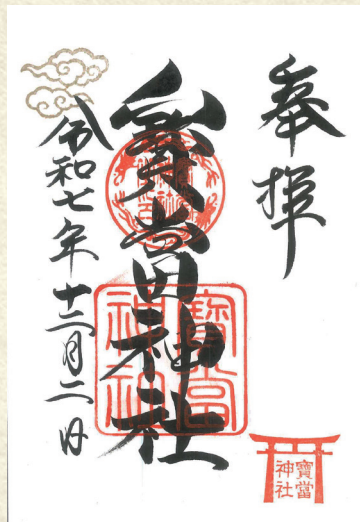 奉拝
寳當神社
令和七年十二月二日
寳當
神社
寳當
神社